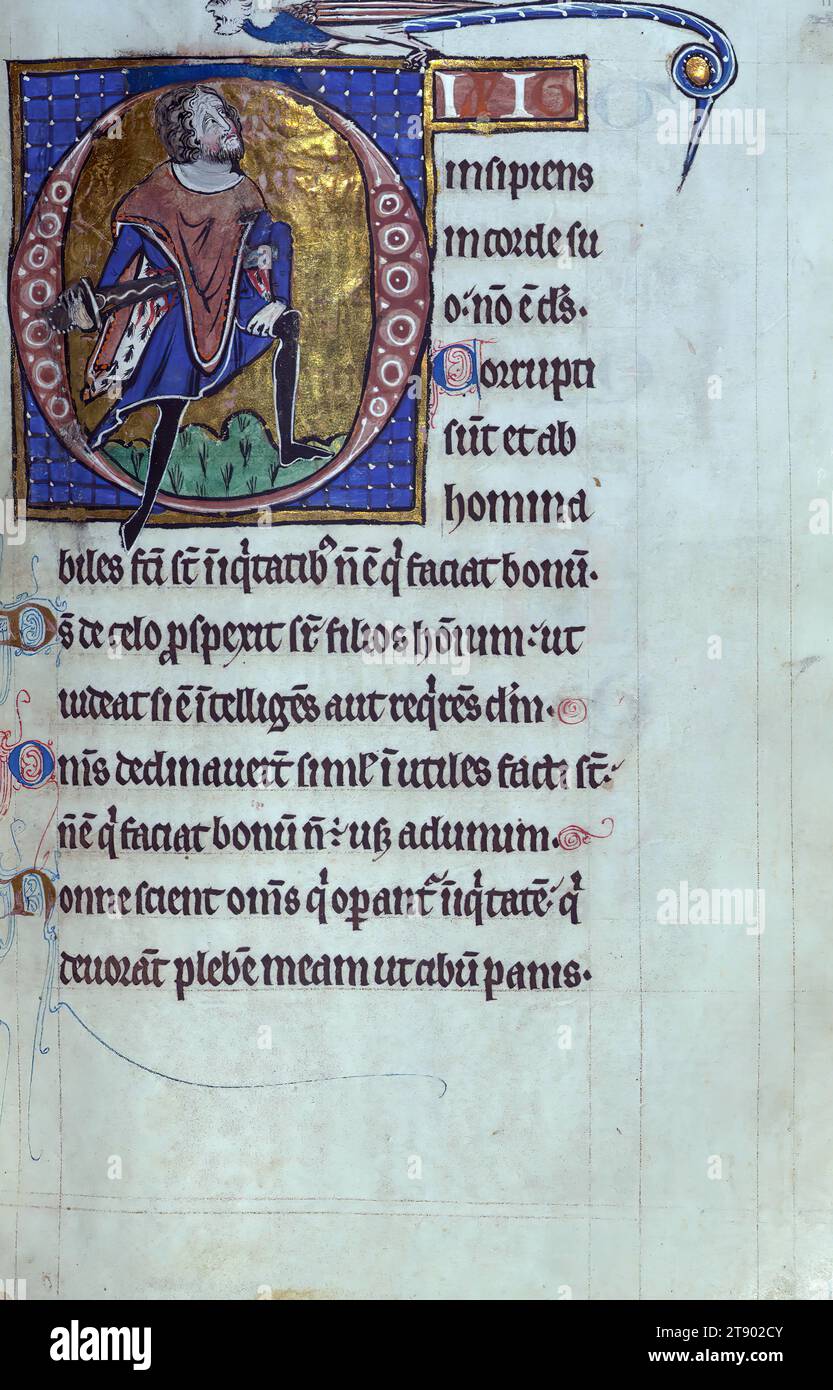 DIXIT
insipiens
in corde su
o· nō ē ds̄·
Corrupti
sūt et ab
homina
biles fcī st̄ ī iiqͥtatib⁹ nͫ ē qͥ faciat bonū·
Ds̄ de celo ꝓspexit sr̄ filios hōium· ut
uideat si ē ītelligēs aut reqͥrēs dm̄·
Oms̄ declinauerūt siml̄ īutiles facti st̄·
n̄ ē qͥ faciat bonū n̄ ē usꝗ ad unum·
Nonne scient oms̄ qͥ oꝑant᷑ īiqͥtatē· qͥ
deuorāt plebē meam ut cibū panis·
alamy
Image ID: 2T902CY
www.alamy.com